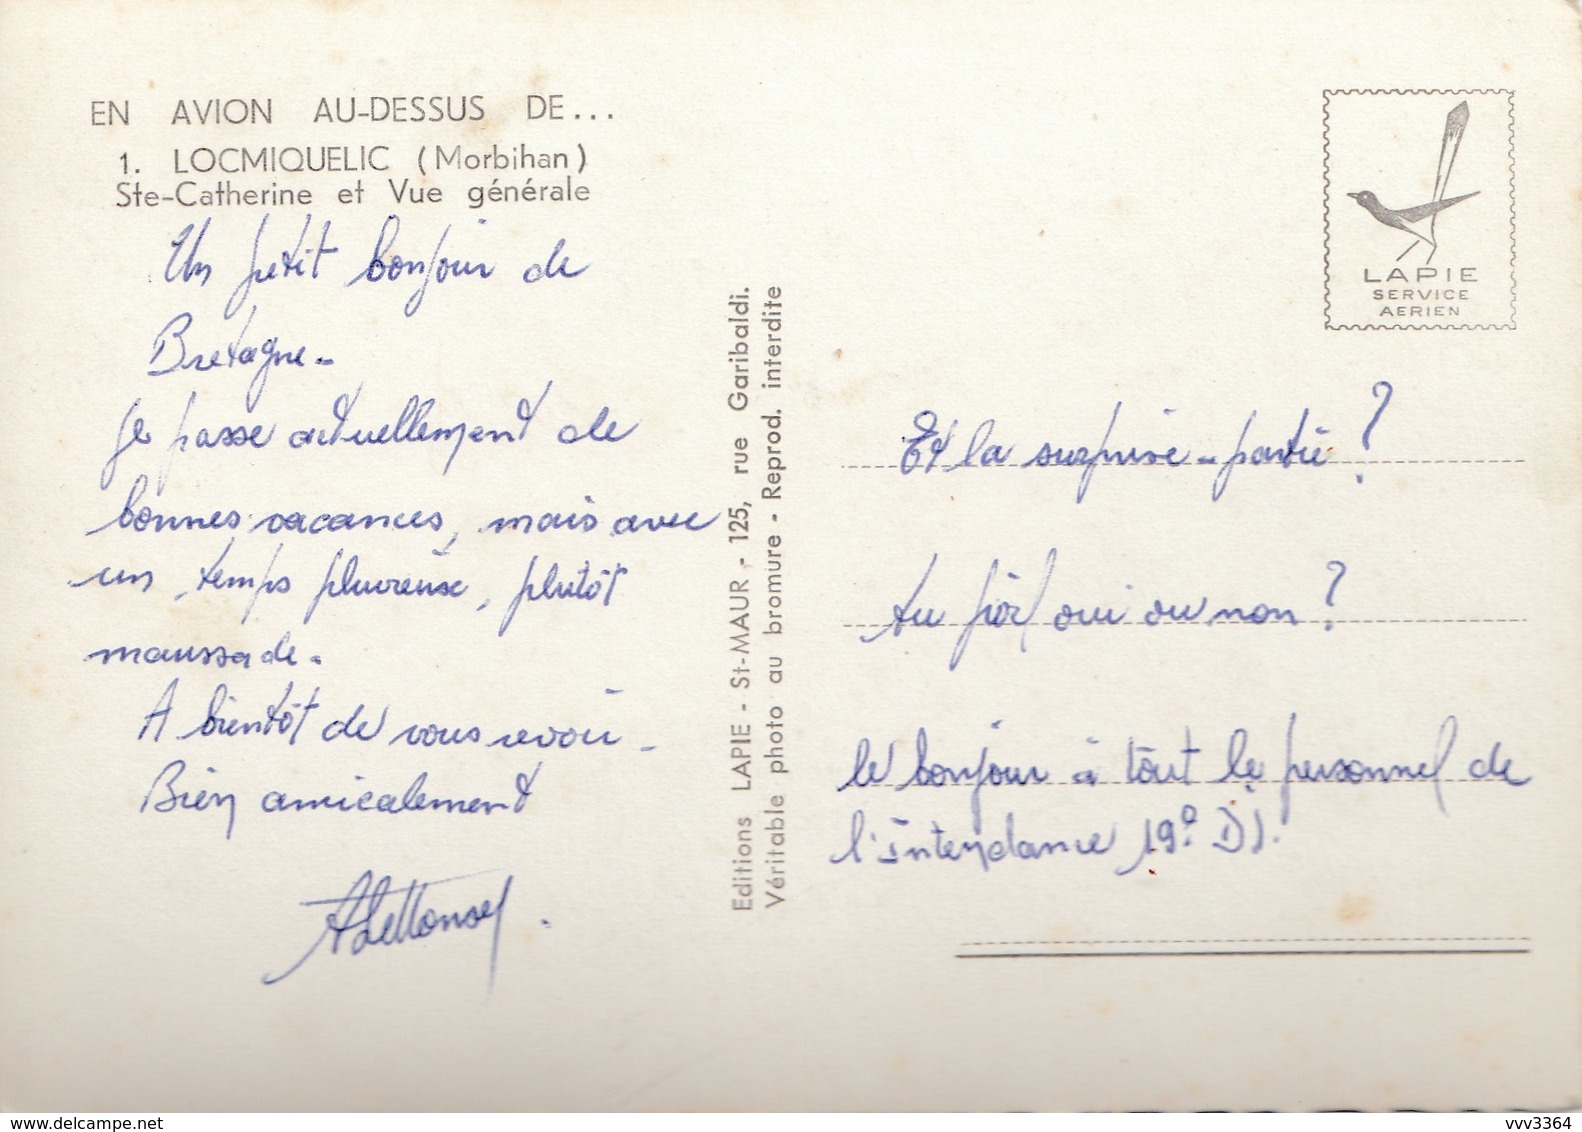 EN AVION AU-DESSUS DE...
1. LOCMIQUELIC (Morbihan)
Ste-Catherine et Vue générale
Un petit bonjour de
Bretagne -
Je passe actuellement de
bonnes vacances, mais avec
un temps pluvieuse, plutôt
maussade.
A bientôt de vous revoir -
Bien amicalement
Editions LAPIE - St-MAUR - 125, rue Garibaldi.
Véritable photo au bromure - Reprod. interdite
LAPIE
SERVICE
AERIEN
Et la surprise-partie ?
tu oui ou non ?
le bonjour à tout le personnel de
l'intendance 19° DI.
delcampe.net
vvv3364